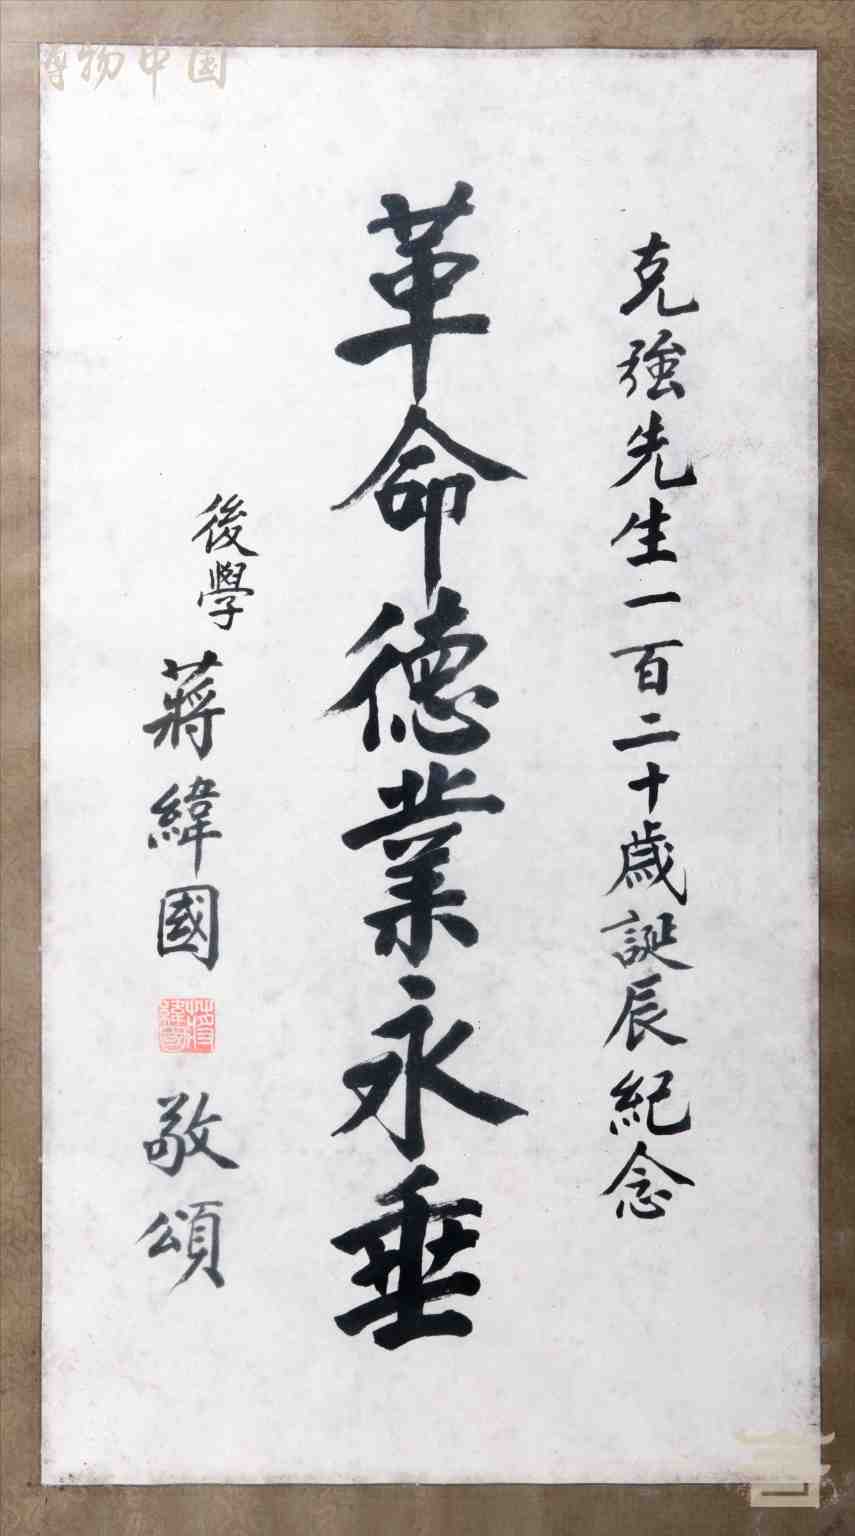 克強先生一百二十歲誕辰紀念
革命德業永垂
後學
蔣緯國
敬頌
蔣緯國
博物中国